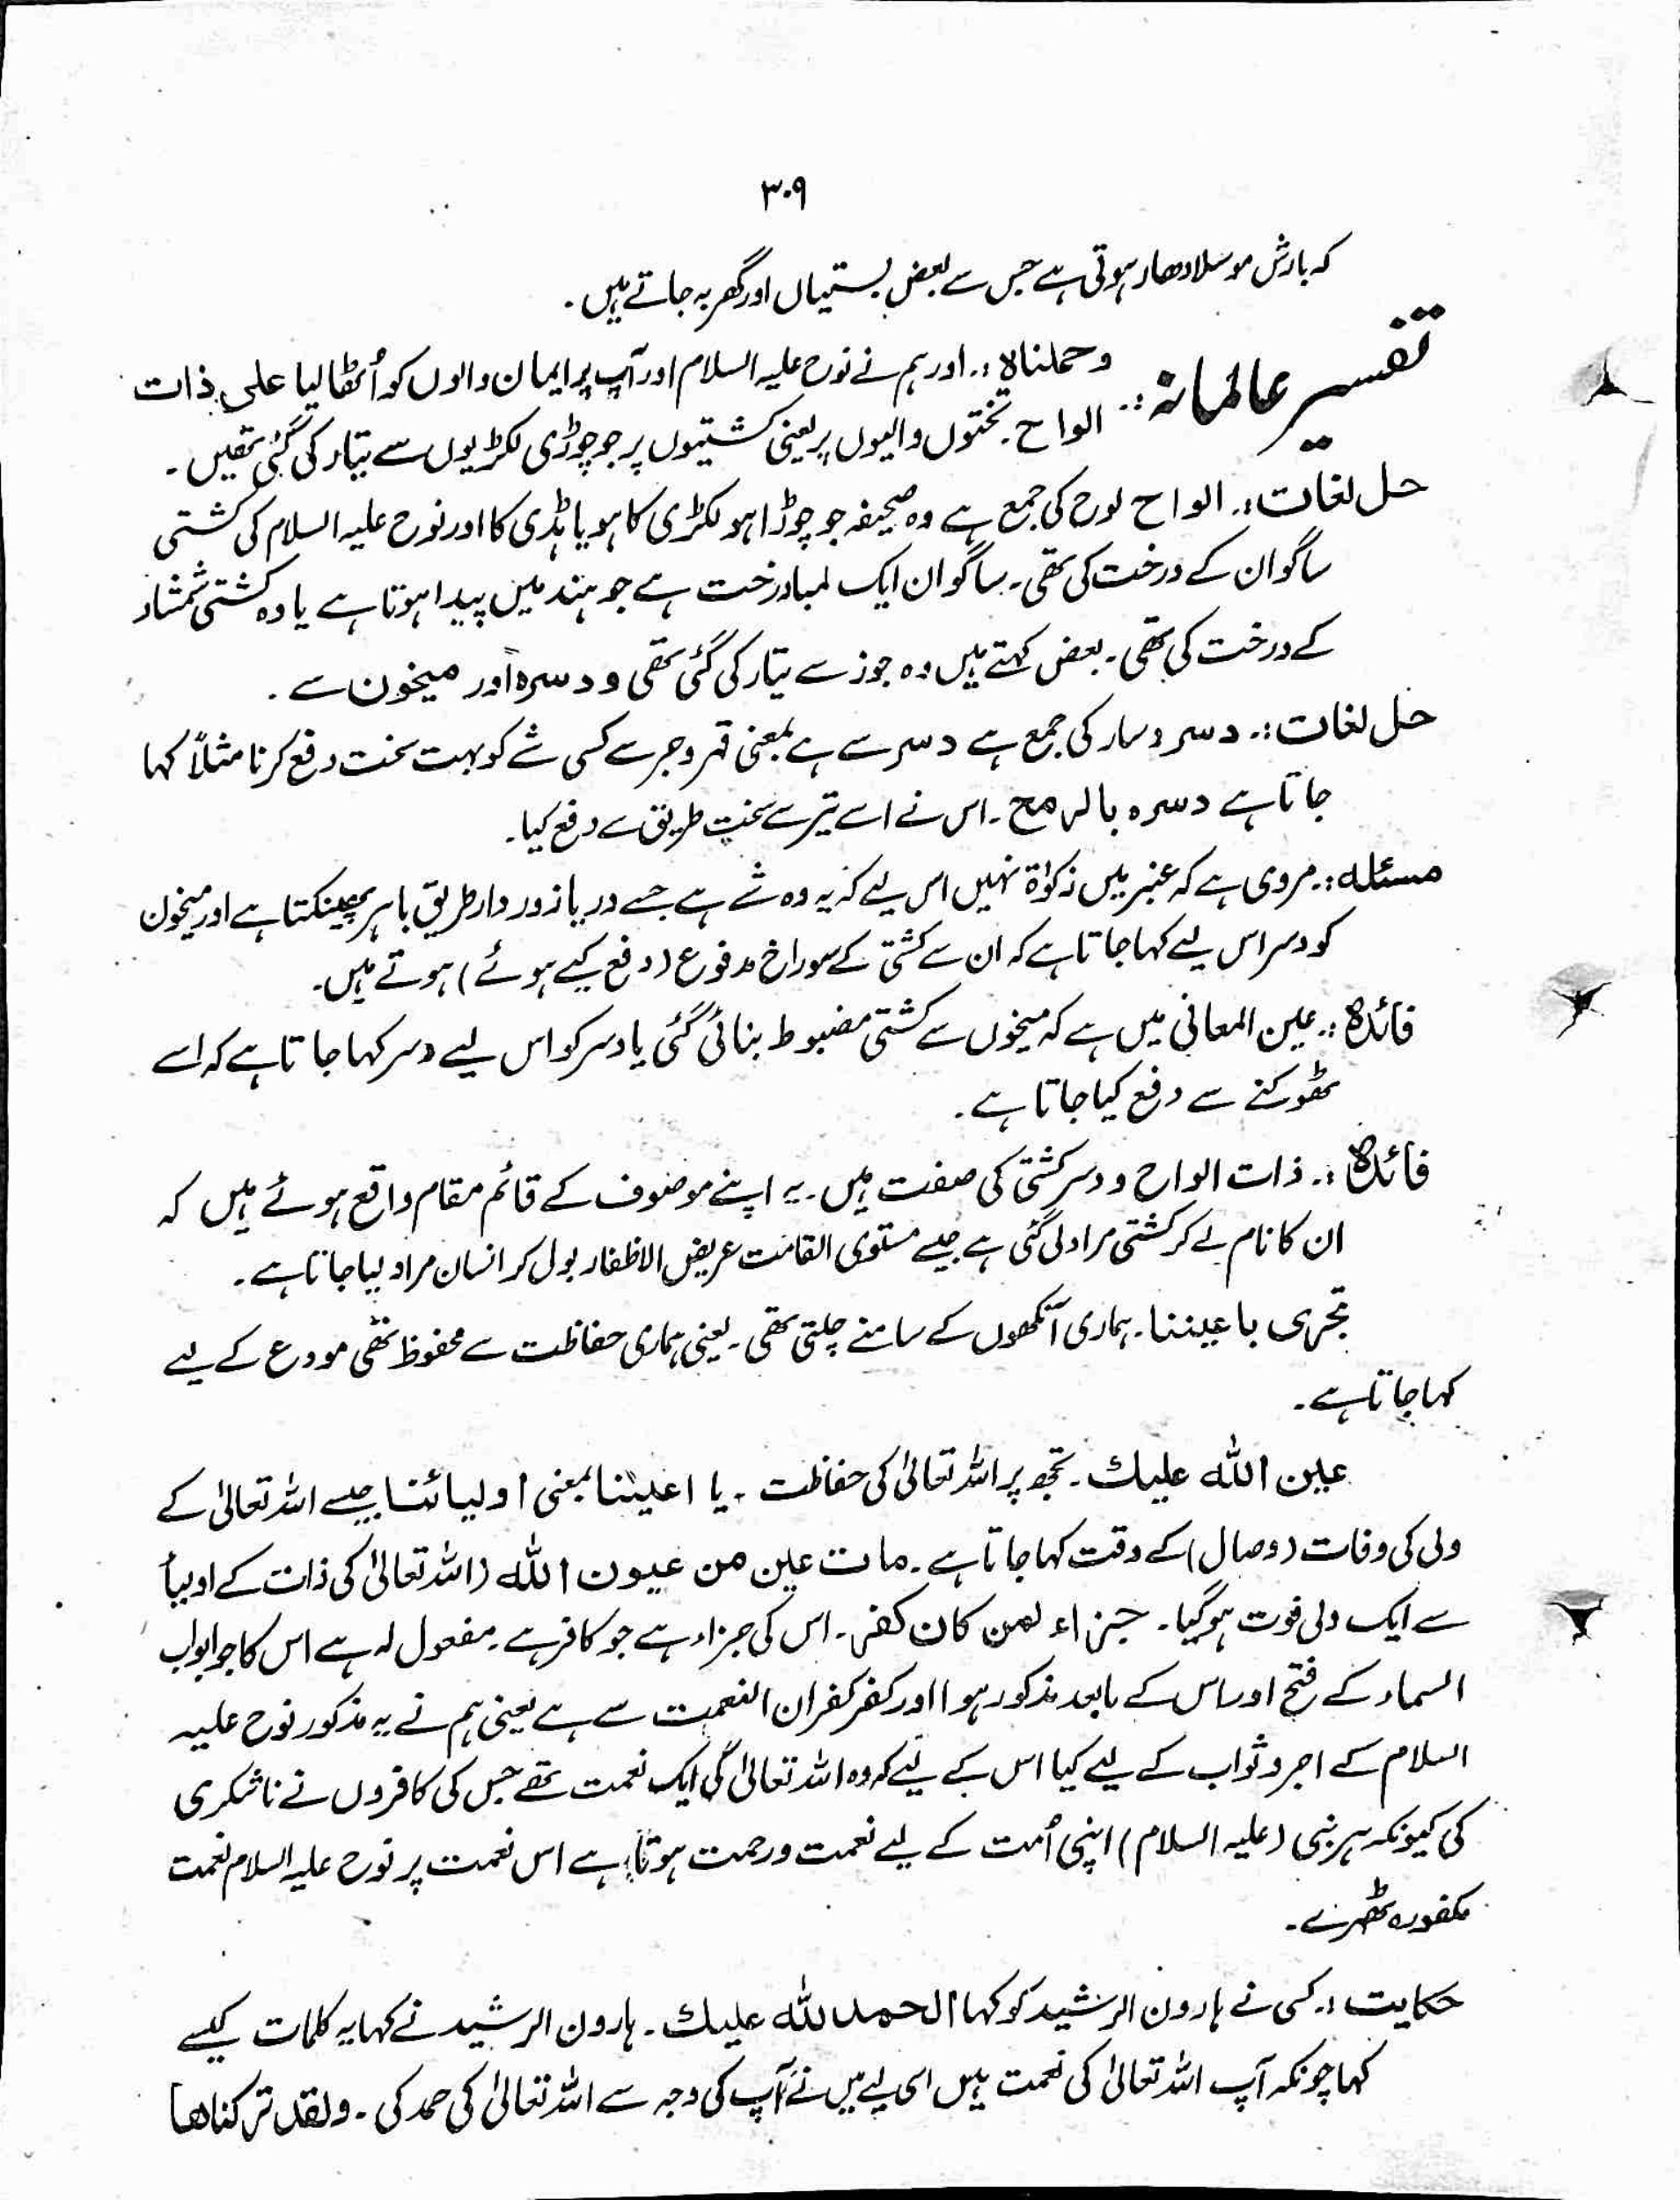 ۳۰۹
کہ بارش موسلادھار ہوتی ہے جس سے بعض بستیاں اور گھر بہ جاتے ہیں۔
تفسیر عالمانہ:۔ وحملناہ:۔ اور ہم نے نوح علیہ السلام اور آپ پر ایمان والوں کو اُٹھا لیا علی ذات
الواح۔ تختوں والیوں پر یعنی کشتیوں پر جو چوڑی لکڑیوں سے تیار کی گئی تھیں۔
حل لغات:۔ الواح لوح کی جمع ہے وہ صحیفہ جو چوڑا ہو لکڑی کا ہو یا ہڈی کا اور نوح علیہ السلام کی کشتی
ساگوان کے درخت کی تھی۔ ساگوان ایک لمبا درخت ہے جو ہند میں پیدا ہوتا ہے یا وہ کشتی شمشاد
کے درخت کی تھی۔ بعض کہتے ہیں وہ جوز سے تیار کی گئی تھی و دسرہ اور میخون سے۔
حل لغات:۔ دسر دسار کی جمع ہے دسر سے ہے بمعنی قہر و جبر سے کسی شے کو بہت سخت دفع کرنا مثلاً کہا
جاتا ہے دسرہ بالرمح۔ اس نے اسے تیر سے سخت طریق سے دفع کیا۔
مسئلہ:۔ مروی ہے کہ عنبر میں زکوٰۃ نہیں اس لیے کہ یہ وہ شے ہے جسے دریا زور دار طریق باہر پھینکتا ہے اور میخون
کو دسر اس لیے کہا جاتا ہے کہ ان سے کشتی کے سوراخ مدفوع (دفع کیے ہوئے) ہوتے ہیں۔
فائدہ:۔ عین المعانی میں ہے کہ میخوں سے کشتی مضبوط بنائی گئی یا دسر کو اس لیے دسر کہا جاتا ہے کہ اسے
ٹھوکنے سے دفع کیا جاتا ہے۔
فائدہ:۔ ذات الواح و دسر کشتی کی صفت ہیں۔ یہ اپنے موصوف کے قائم مقام واقع ہوئے ہیں کہ
ان کا نام لے کر کشتی مراد لی گئی ہے جیسے مستوی القامت عریض الاظفار بول کر انسان مراد لیا جاتا ہے۔
تجری باعیننا۔ ہماری آنکھوں کے سامنے چلتی تھی۔ یعنی ہماری حفاظت سے محفوظ تھی مودع کے لیے
کہا جاتا ہے۔
عین اللہ علیك۔ تجھ پر اللہ تعالیٰ کی حفاظت۔ یا اعیننا بمعنی اولیائنا جیسے اللہ تعالیٰ کے
ولی کی وفات (وصال) کے وقت کہا جاتا ہے۔ مات عین من عیون اللہ (اللہ تعالیٰ کی ذات کے اولیأ
سے ایک ولی فوت ہو گیا۔ جزاء لمن کان کفر۔ اس کی جزاء ہے جو کافر ہے۔ مفعول لہ ہے اس کا جو ابواب
السماء کے فتح اور اس کے مابعد مذکور ہوا اور کفر کفران النعمت سے ہے یعنی ہم نے یہ مذکور نوح علیہ
السلام کے اجر و ثواب کے لیے کیا اس کے لیے کہ وہ اللہ تعالیٰ کی ایک نعمت تھے جس کی کافروں نے ناشکری
کی کیونکہ ہر نبی (علیہ السلام) اپنی اُمت کے لیے نعمت و رحمت ہوتا ہے اس نعمت پر نوح علیہ السلام نعمت
مکفورہ ٹھہرے۔
حکایت:۔ کسی نے ہارون الرشید کو کہا الحمد للہ علیك۔ ہارون الرشید نے کہا یہ کلمات کیسے
کہا چونکہ آپ اللہ تعالیٰ کی نعمت ہیں اسی لیے میں نے آپ کی وجہ سے اللہ تعالیٰ کی حمد کی۔ ولقد ترکناھا